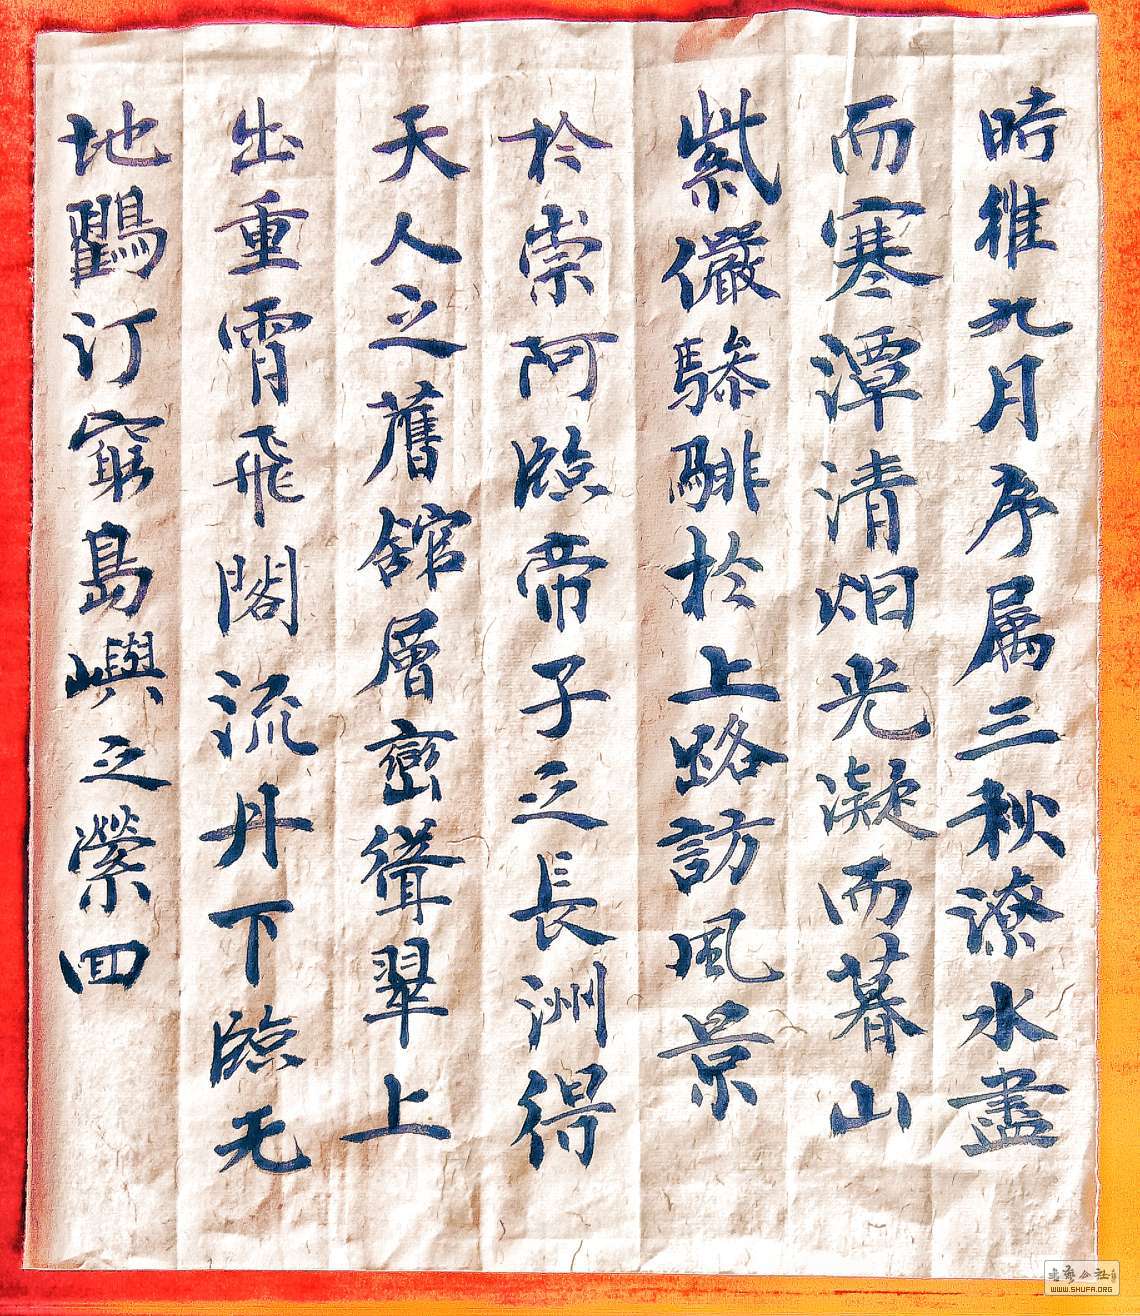 時維九月序属三秋潦水盡
而寒潭清烟光凝而暮山
紫儼驂騑於上路訪風景
於崇阿臨帝子之長洲得
天人之舊館層巒聳翠上
出重霄飛閣流丹下臨无
地鸖汀窮島嶼之縈囬
WWW.SHUFA.ORG